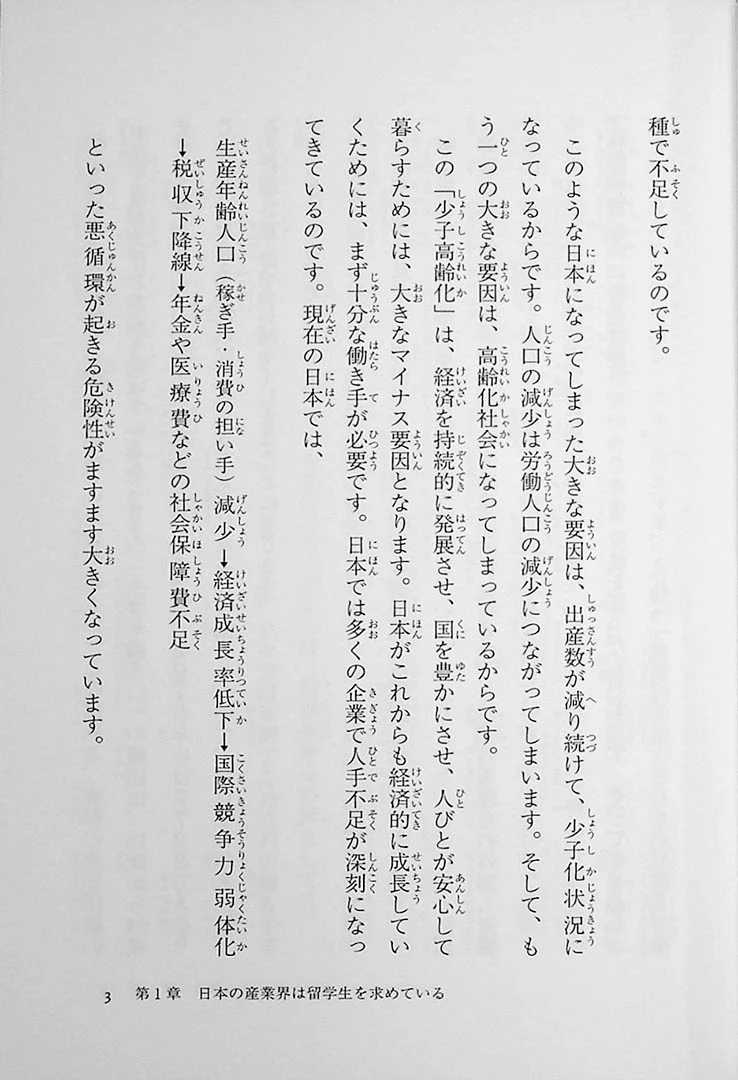 種で不足しているのです。
このような日本になってしまった大きな要因は、出産数が減り続けて、少子化状況に
なっているからです。人口の減少は労働人口の減少につながってしまいます。そして、も
う一つの大きな要因は、高齢化社会になってしまっているからです。
この「少子高齢化」は、経済を持続的に発展させ、国を豊かにさせ、人びとが安心して
暮らすためには、大きなマイナス要因となります。日本がこれからも経済的に成長してい
くためには、まず十分な働き手が必要です。日本では多くの企業で人手不足が深刻になっ
てきているのです。現在の日本では、
生産年齢人口（稼ぎ手・消費の担い手）減少→経済成長率低下→国際競争力弱体化
→税収下降線→年金や医療費などの社会保障費不足
といった悪循環が起きる危険性がますます大きくなっています。
3 第1章 日本の産業界は留学生を求めている